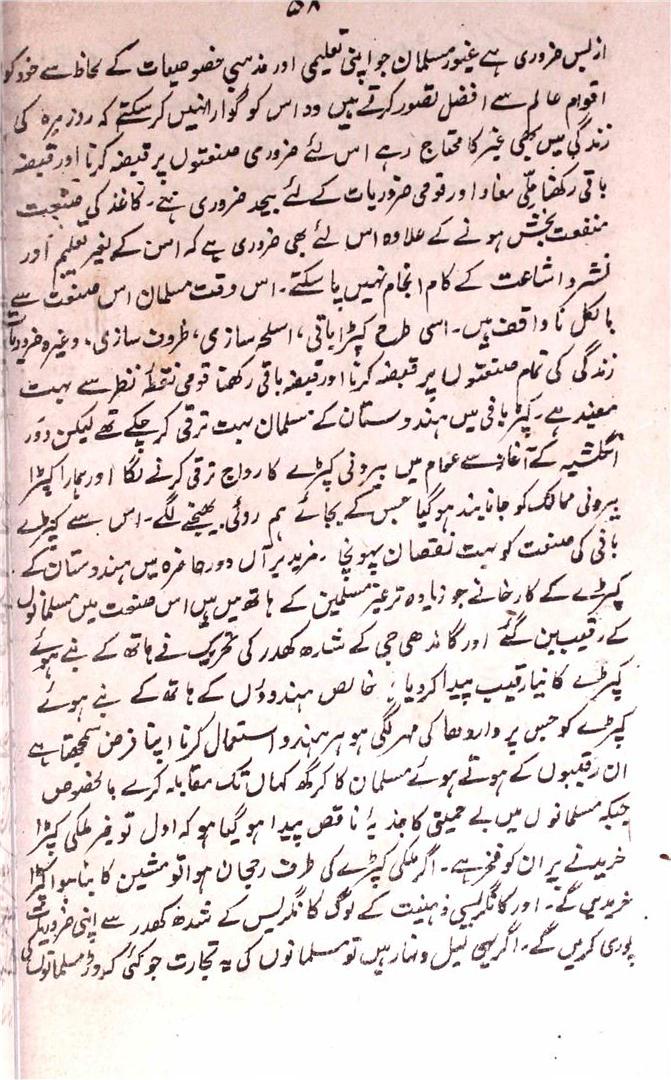 ۵۸
ازبس ضروری ہے غیور مسلمان جو اپنی تعلیمی اور مذہبی خصوصیات کے لحاظ سے خود کو
اقوام عالم سے افضل تصور کرتے ہیں وہ اس کو گوارا نہیں کر سکتے کہ روز مرہ کی
زندگی میں بھی غیر کا محتاج رہے اس لئے ضروری صنعتوں پر قبضہ کرنا اور قبضہ
باقی رکھنا ملّی مفاد اور قومی ضروریات کے لئے بیحد ضروری ہے۔ کاغذ کی صنعت
منفعت بخش ہونے کے علاوہ اس لئے بھی ضروری ہے کہ اس کے بغیر تعلیم اور
نشر و اشاعت کے کام انجام نہیں پا سکتے۔ اس وقت مسلمان اس صنعت سے
بالکل ناواقف ہیں۔ اسی طرح کپڑا بافی، اسلحہ سازی، ظروف سازی، وغیرہ ضروریات
زندگی کی تمام صنعتوں پر قبضہ کرنا اور قبضہ باقی رکھنا قومی نقطۂ نظر سے بہت
مفید ہے۔ کپڑا بافی میں ہندوستان کے مسلمان بہت ترقی کر چکے تھے لیکن دور
انگلشیہ کے آغاز سے عوام میں بیرونی کپڑے کا رواج ترقی کرنے لگا اور ہمارا کپڑا
بیرونی ممالک کو جانا بند ہو گیا جس کے بجائے ہم روئی بھیجنے لگے۔ اس سے کپڑے
بافی کی صنعت کو بہت نقصان پہونچا۔ مزید برآں دور حاضرہ میں ہندوستان کے
کپڑے کے کارخانے جو زیادہ تر غیر مسلمین کے ہاتھ میں ہیں اس صنعت میں مسلمانوں
کے رقیب بن گئے اور گاندھی جی کے شدھ کھدر کی تحریک نے ہاتھ کے بنے ہوئے
کپڑے کا نیا رقیب پیدا کر دیا؛ خالص ہندوؤں کے ہاتھ کے بنے ہوئے
کپڑے کو جس پر واردھا کی مہر لگی ہو ہر ہندو استعمال کرنا اپنا فرض سمجھتا ہے
ان رقیبوں کے ہوتے ہوئے مسلمان کا کرگھ کہاں تک مقابلہ کرے بالخصوص
جبکہ مسلمانوں میں بے حمیتی کا جذبۂ ناقص پیدا ہو گیا ہو کہ اول تو غیر ملکی کپڑا
خریدنے پر ان کو فخر ہے۔ اگر ملکی کپڑے کی طرف رجحان ہوا تو مشین کا بنا ہوا کپڑا
خریدیں گے۔ اور کانگریسی ذہنیت کے لوگ کانگریس کے شدھ کھدر سے اپنی ضروریات
پوری کریں گے۔ اگر یہی لیل و نہار ہیں تو مسلمانوں کی یہ تجارت جو کئی کروڑ مسلمانوں کی